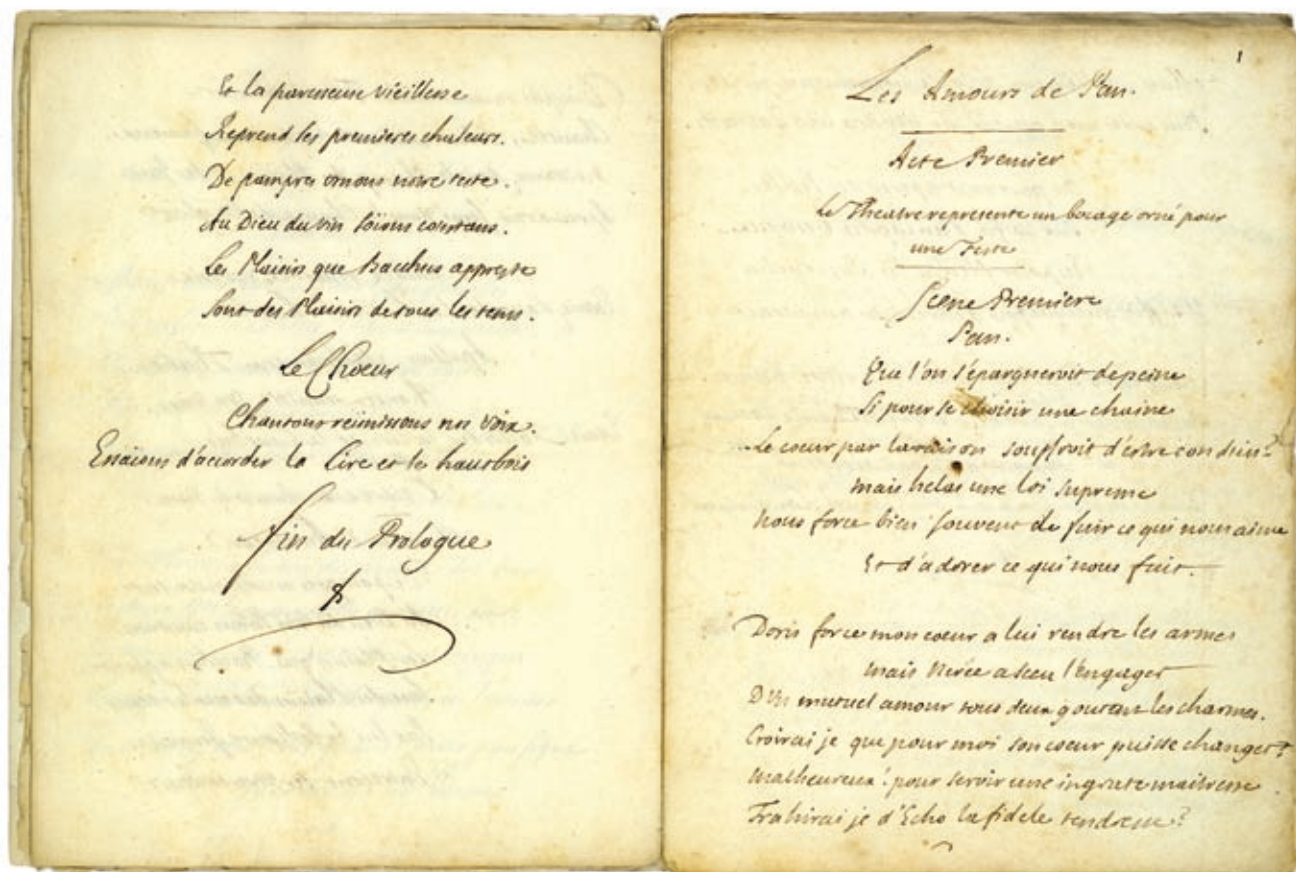 Et la paresseuse vieillesse
Reprend les premieres chaleurs.
De pampres ornons nôtre teste.
Au Dieu du vin soïons constans.
Les Plaisirs que Bacchus appreste
Sont des Plaisirs de tous les tems.
Le Choeur
Chantons reünissons nos voix.
Essaions d'accorder la Lire et le hautbois
Fin du Prologue
1
Les Amours de Pan.
Acte Premier
Le Theatre represente un bocage orné pour
une Feste
Scene Premiere
Pan.
Que l'on s'épargneroit de peine
Si pour se choisir une chaine
Le coeur par la raison souffroit d'estre conduit?
mais helas une loi supreme
nous force bien souvent de fuir ce qui nous aime
Et d'adorer ce qui nous fuit.
Doris force mon coeur a lui rendre les armes
mais Nérée a sceu l'engager
D'un mutuel amour tous deux goutent les charmes.
Croirai je que pour moi son coeur puisse changer?
malheureux! pour servir une ingrate maitresse
Trahirai je d'Echo la fidele tendresse?